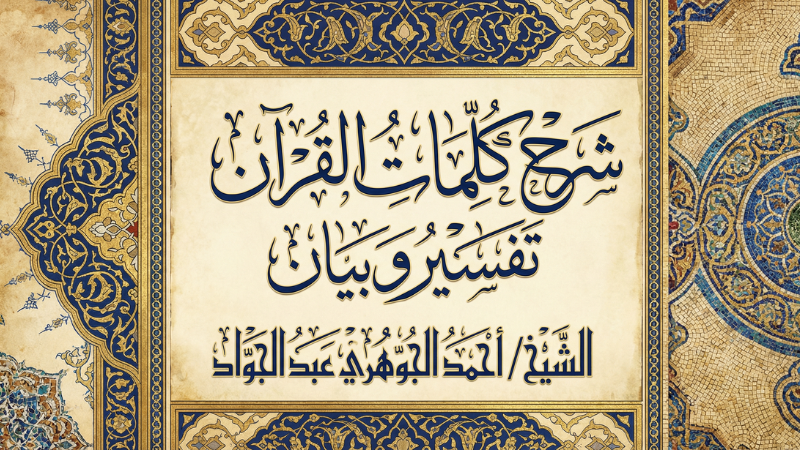 شَرْحُ كُلِّمَاتِ القُرْآن
تَفْسَيْرُ وَبَيَان
الشَّيْخ/ أحْمَدُ الجُوَّهُرِيْ عَبَدُ الجَوَّاد